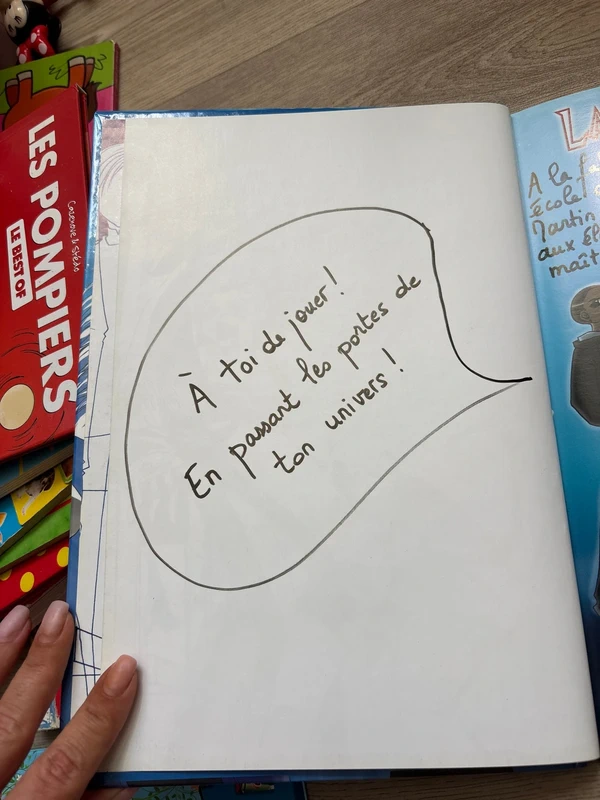 LES POMPIERS
LE BEST OF
Cazenove & Stédo
À toi de jouer !
En passant les portes de
ton univers !
LA
A la f
école
Martin
aux él
maît